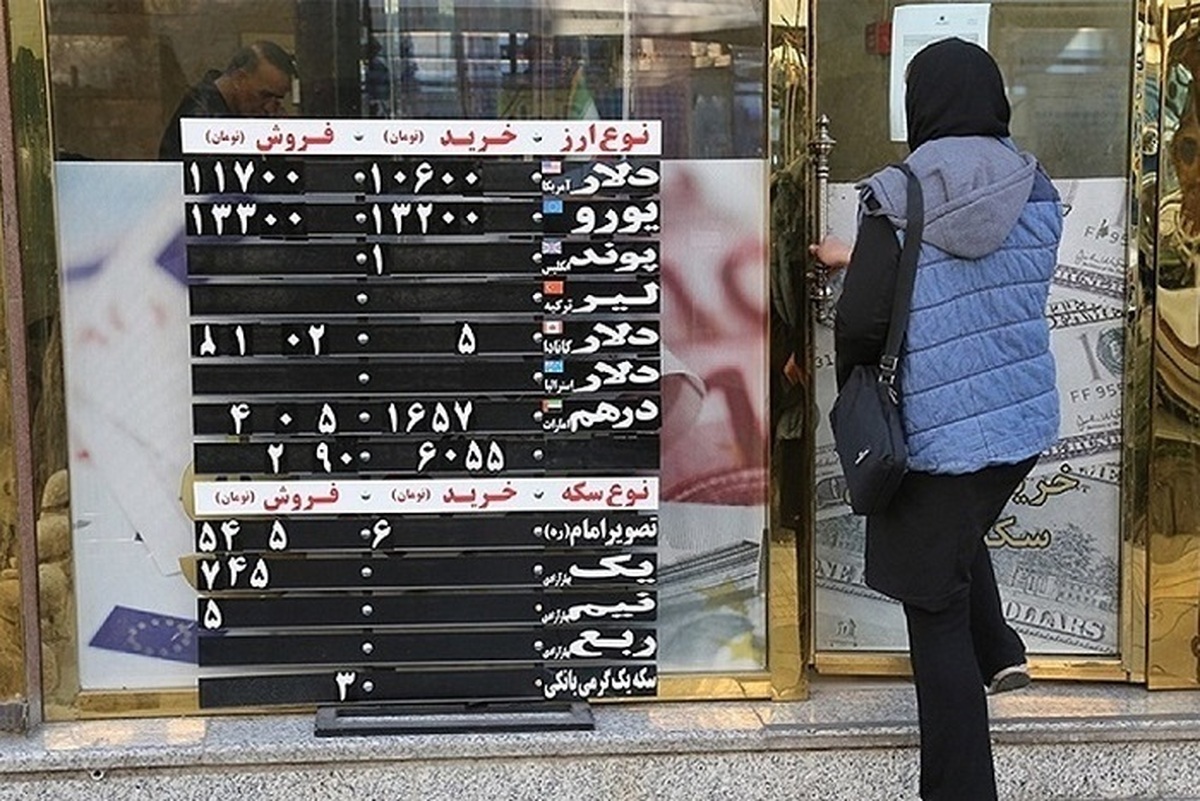 نوع ارز خرید (تومان) فروش (تومان)
دلار آمریکا ۱۰۶۰۰ ۱۱۷۰۰
یورو ۱۳۲۰۰ ۱۳۳۰۰
پوند انگلیس ۱
لیر ترکیه
دلار کانادا ۵ ۸۱ ۰۲
دلار استرالیا
درهم امارات ۱۶۵۷ ۴ ۰ ۵
۶۰۵۵ ۲ ۹۰
نوع سکه خرید (تومان) فروش (تومان)
تصویر امام (ره) ۶ ۵۴ ۵
یک بهار آزادی ۷۴۵
نیم بهار آزادی ۵
ربع بهار آزادی
سکه یک گرمی بانکی ۳
خرید
سکه
FF 955
DOLLARS